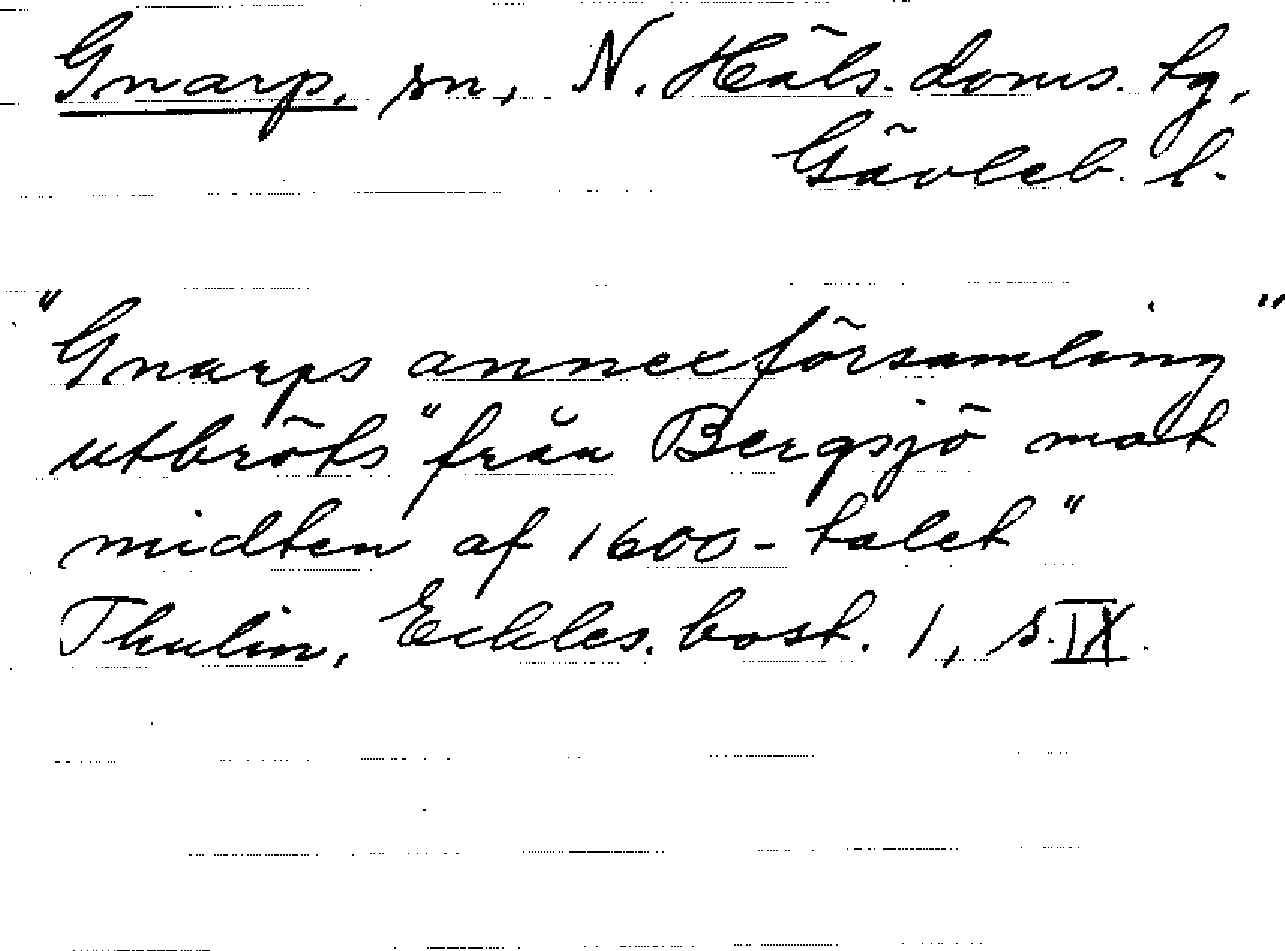 Gnarp, sn, N. Häls. doms. tg,
Gävleb. l.
"Gnarps annexförsamling"
utbröts "från Bergsjö mot
midten af 1600-talet"
Thulin, Eckles. bost. 1, s. IX.